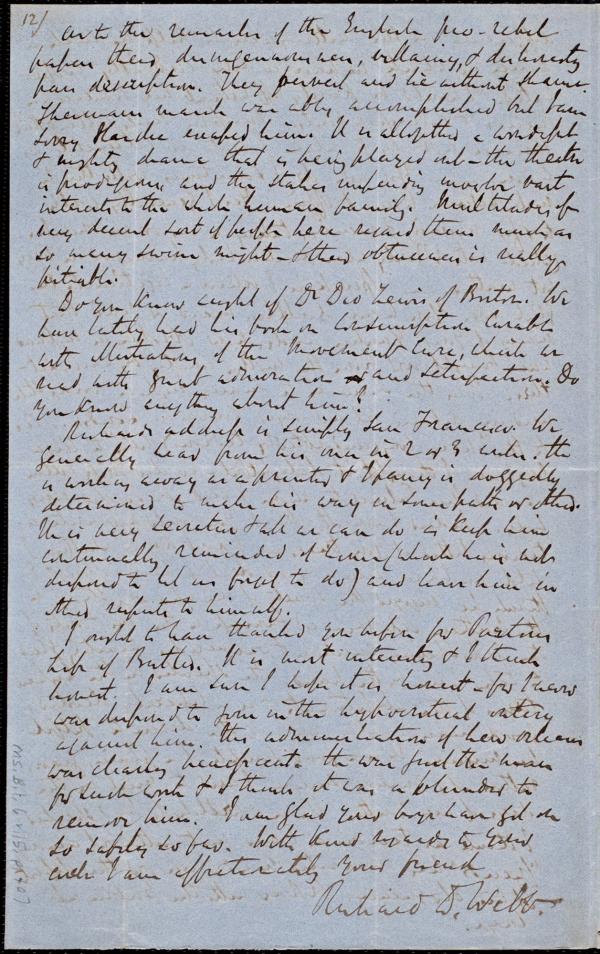 12/
As to the remarks of the English pro-rebel
papers their disingenuousness, villainy, & dishonesty
pass description. They pervert and lie without shame.
Sherman's march was ably accomplished but I am
sorry Hardee escaped him. It is altogether a wonderful
& mighty drama that is being played out – the theatre
is prodigious, and the stakes impending involve vast
interests to the whole human family. Multitudes of
very decent sort of people here regard them much as
so many swine might – & their obtuseness is really
pitiable.
Do you know aught of Dr Dio Lewis of Boston. We
have lately had his book on Consumption Curable
with illustrations of the Movement Cure, which we
read with great admiration and satisfaction. Do
you know anything about him?
Richard's address is simply San Francisco. We
generally hear from him once in 2 or 3 weeks. He
is working away as a printer & I fancy is doggedly
determined to make his way in some path or other.
He is very secretive & all we can do is keep him
continually reminded of home (which he is not
disposed to let us forget to do) and leave him in
other respects to himself.
I ought to have thanked you before for Parton's
Life of Butler. It is most interesting & I think
honest. I am sure I hope it is honest – for I never
was disposed to join in the hypocritical outcry
against him. His administration of New Orleans
was clearly beneficent. He was just the man
for such work & I think it was a blunder to
remove him. I am glad your boys have got on
so safely so far. With kind regards to your
circle I am affectionately your friend
Richard D. Webb.